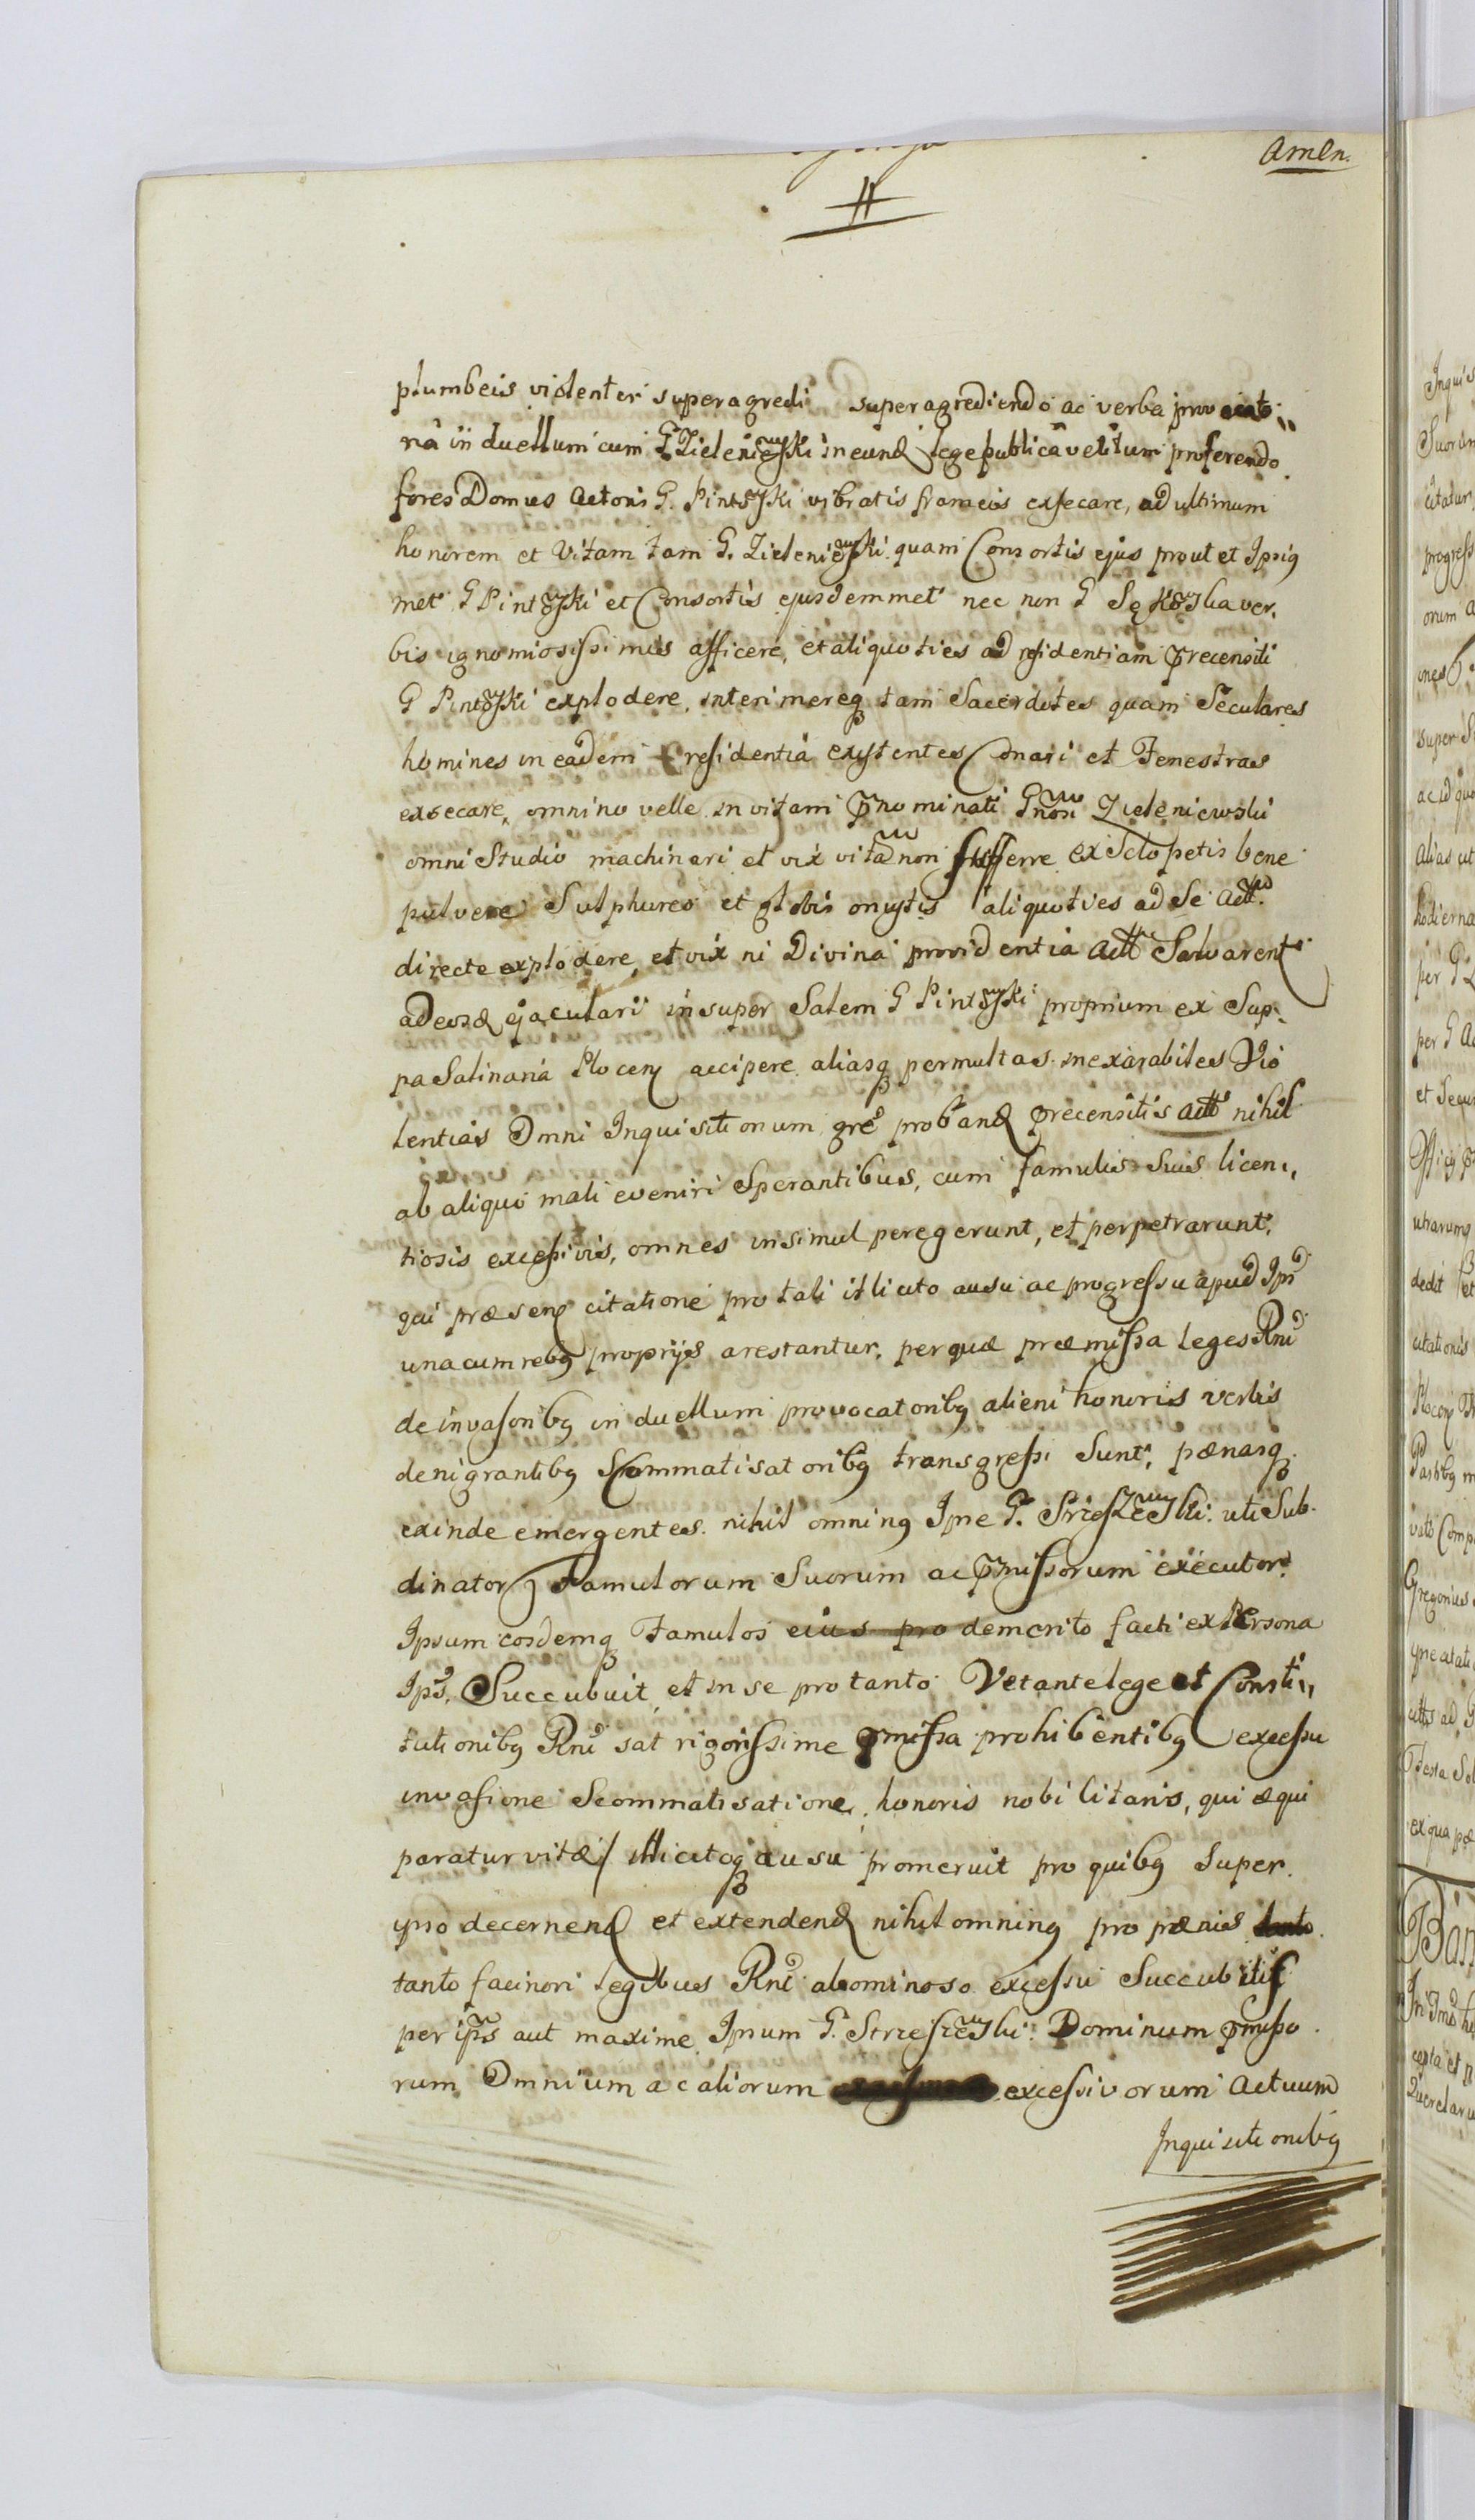 Amen.
plumbeis violenter superagredi superagrediendo ac verba provocato„
ria in duellum cum G Zieleniewski ineund lege publica vetitum proferendo
fores Domus Actoris G. Pintowski vibratis frameis exsecare, ad ultimum
honorem et Vitam tam G. Zieleniewski quam Consortis ejus prout et Ipsig
met G Pintowski et Consortis ejusdemmet nec non G Sękowska ver,
bis ignomiosissimis afficere, et aliquoties ad residentiam precensiti
G Pintowski explodere, interimereq tam Sacerdotes quam Seculares
homines in eadem residentia existentes Conari et Fenestras
exsecare, omnino velle in vitam pnominati Gnosi Zieleniewski
omni Studio machinari et vix vita non sufferre ex Sclopetis bene
pulvere Sulphureo et globis onustis aliquoties ad Se Actt.
directe explodere, et vix ni Divina providentia Actt Salvarent
ad eosd ejaculari insuper Salem G Pintowski proprium ex Sup,
pa Salinaria Plocen accipere aliasq permultas inexarabiles Vio
lentias Omni Inquisitionum gre proband precensitis Actt nihil
ab aliquo mali eveniri Sperantibus, cum famulis Suis licen„
tiosis excessivis, omnes insimul peregerunt, et perpetrarunt,
qui præsen citatione pro tali illicito ausu ac progressu apud Ipd
unacum rebg proprys arestantur, per quæ præmissa leges Rni
de invasoribg in duellum provocatoribg alieni honoris verbis
denigrantibg Scommatisatoribg transgressi Sunt, pænasq
exinde emergentes. nihil omning Ipne G. Strzeszewski: uti Sub
dinator Famulorum Suorum ac pmissorum executor
Ipsum eosdemq Famulos eius pro demerito facti ex Persona
Ips, Succubuit et in se pro tanto Vetante lege et Consti„
tutionibg Rni sat rigorissime pmissa prohibentibg excessu
invasione Scommatisatione, honoris nobilitaris, qui æqui
paratur vitæ / illicitoq ausu promeruit pro quibg Super
ypso decernend et extendend nihilomning pro pænis
tanto facinori legibus Rni abominoso excessu Succubitis
per ips aut maxime Ipsum G. Strzeszewski: Dominum pmisso
rum Omnium ac aliorum excessivorum Actuum
Inquisitionibg